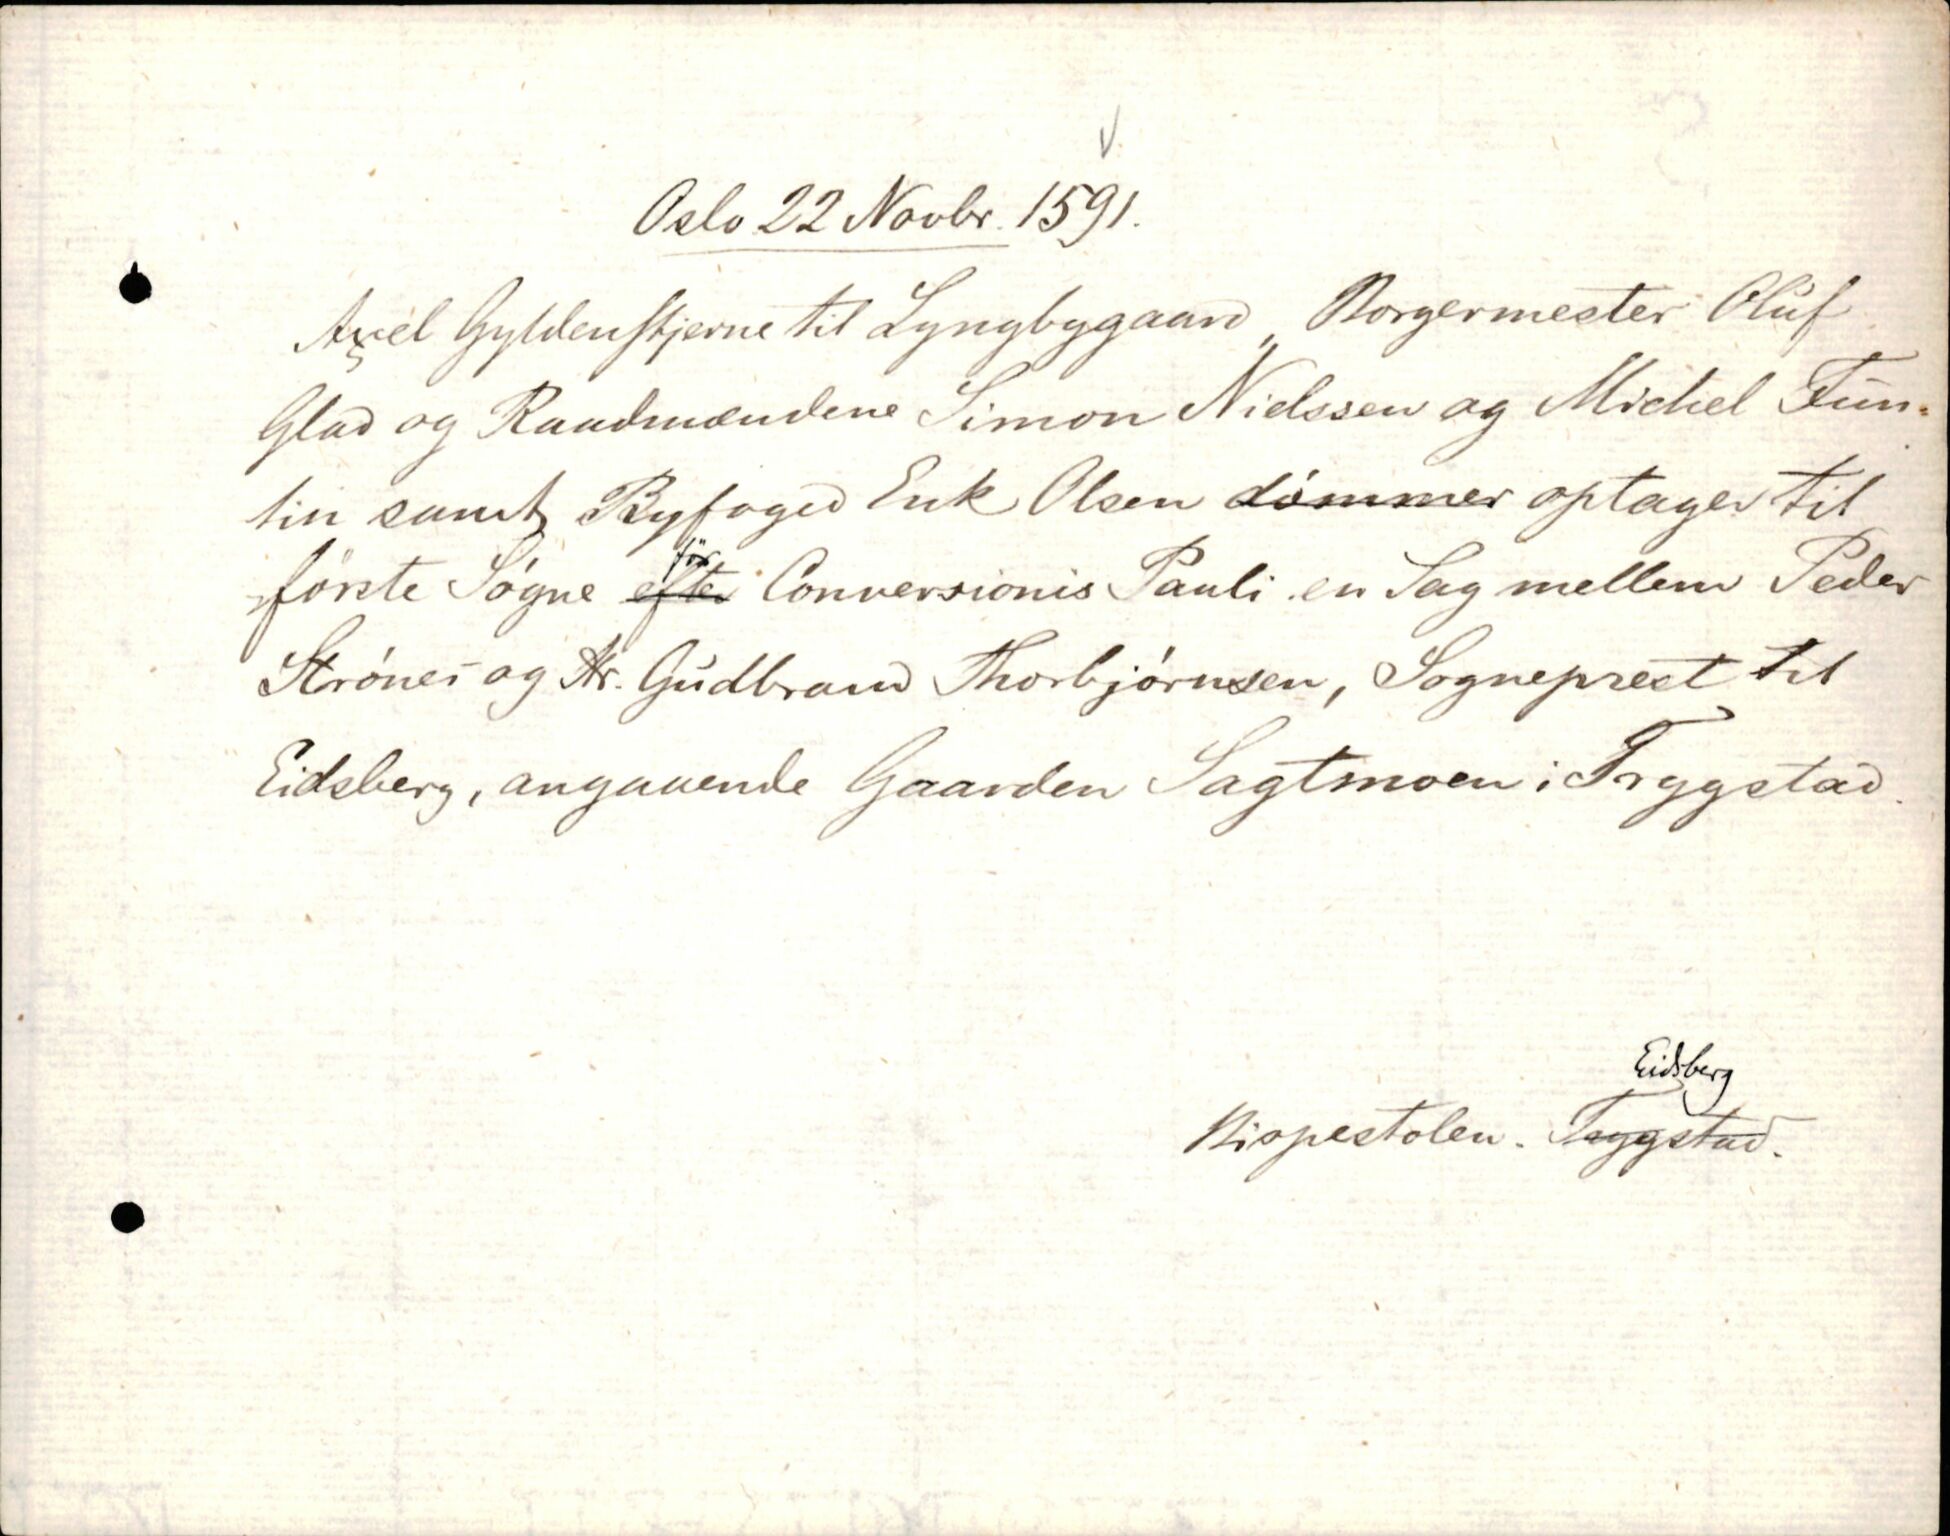 Oslo 22 Novbr. 1591.
Axel Gyldenstjerne til Lyngbygaard, Borgermester Oluf
Glad og Raadmændene Simon Nielssen og Michel Fun-
tin samt Byfoged Erik Olsen dömmer optager til
förste Søgne efter för Conversionis Pauli en Sag mellem Peder
Strönes og Hr. Gudbrand Thorbjörnsen, Sogneprest til
Eidsberg, angaaende Gaarden Sagtmoen i Trygstad.
Eidsberg
Bispestolen. Trygstad.